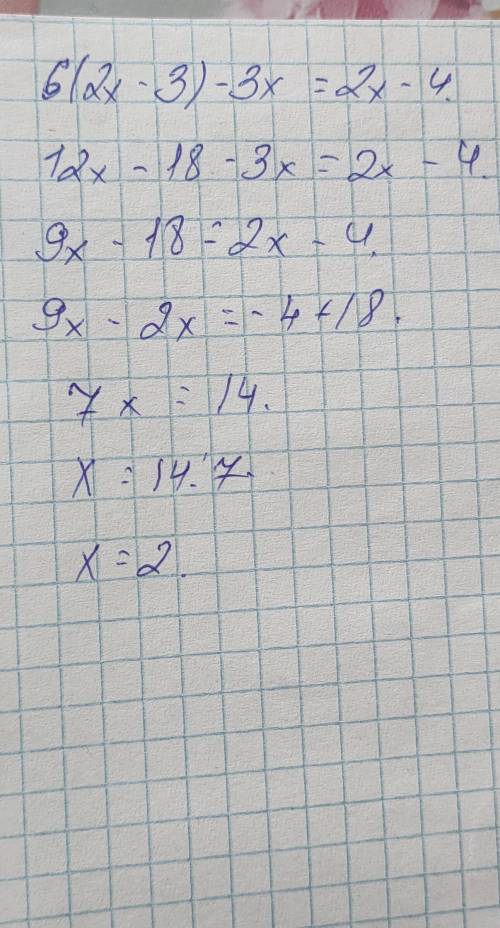 6(2x - 3) - 3x = 2x - 4.
12x - 18 - 3x = 2x - 4.
9x - 18 = 2x - 4.
9x - 2x = - 4 + 18.
7x = 14.
x = 14 : 7.
x = 2.